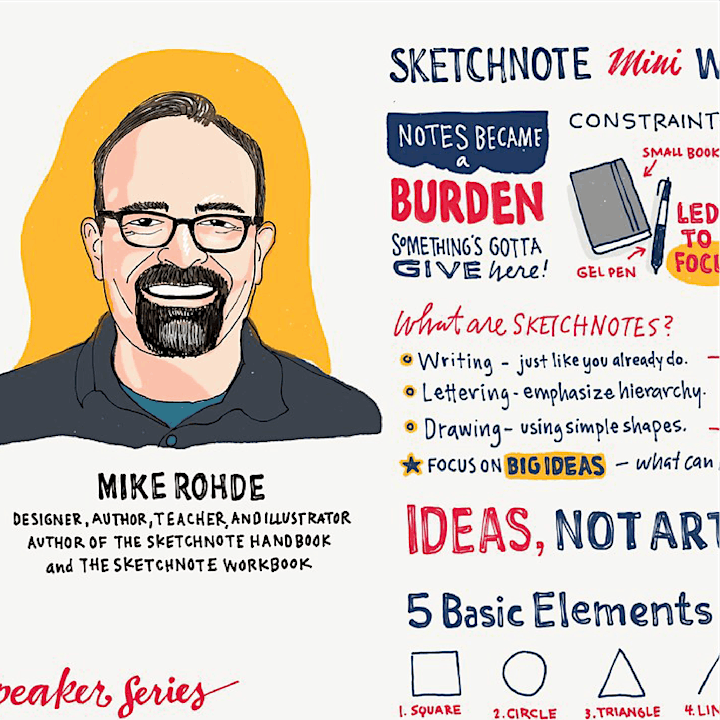 MIKE ROHDE
DESIGNER, AUTHOR, TEACHER, AND ILLUSTRATOR
AUTHOR OF THE SKETCHNOTE HANDBOOK
and THE SKETCHNOTE WORKBOOK
peaker Series
SKETCHNOTE Mini W
NOTES BECAME
a
BURDEN
SOMETHING'S GOTTA
GIVE here!
CONSTRAINT
SMALL BOOK
LED
TO
FOCU
GEL PEN
What are SKETCHNOTES?
Writing - just like you already do.
Lettering - emphasize hierarchy.
Drawing - using simple shapes.
FOCUS ON BIG IDEAS - what can
IDEAS, NOT ART
5 Basic Elements
1. SQUARE
2. CIRCLE
3. TRIANGLE
4. LIN